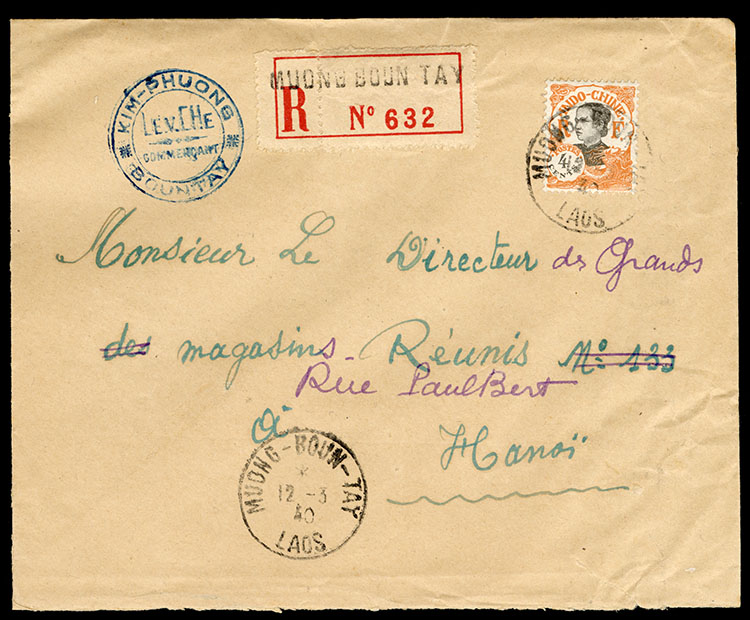 KIM-PHUONG
LE V. CHE
COMMERÇANT
BOUNTAY
MUONG BOUN TAY
R Nº 632
INDO-CHINE
POSTES
MUONG
40
LAOS
Monsieur Le Directeur des Grands
des magasins Réunis Nº 133
Rue PaulBert
à Hanoï
MUONG-BOUN-TAY
12 -3
40
LAOS